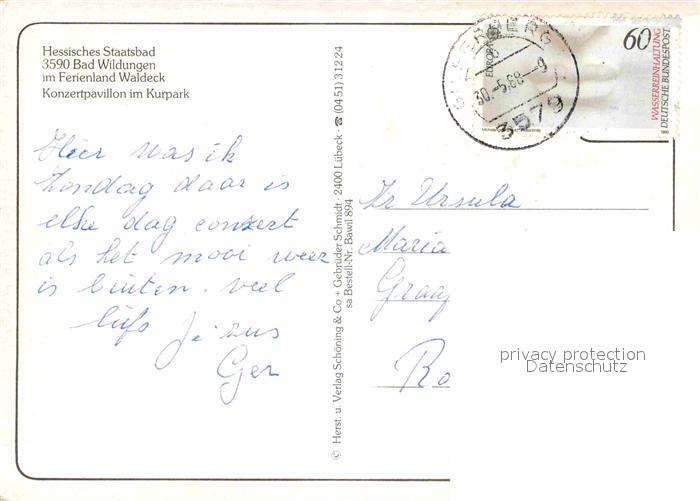 Hessisches Staatsbad
3590 Bad Wildungen
im Ferienland Waldeck
Konzertpavillon im Kurpark
Hier was ik
zondag daar is
elke dag conzert
als het mooi weer
is buiten. veel
liefs Je zus
Ger
© Herst. u. Verlag Schöning & Co + Gebrüder Schmidt · 2400 Lübeck · ☎ (04 51) 3 12 24
sa Bestell-Nr. Bawil 894
30.-5.88-9
3579
EUROPA
60
WASSERREINHALTUNG
DEUTSCHE BUNDESPOST
Zr Ursula
Maria
privacy protection
Datenschutz